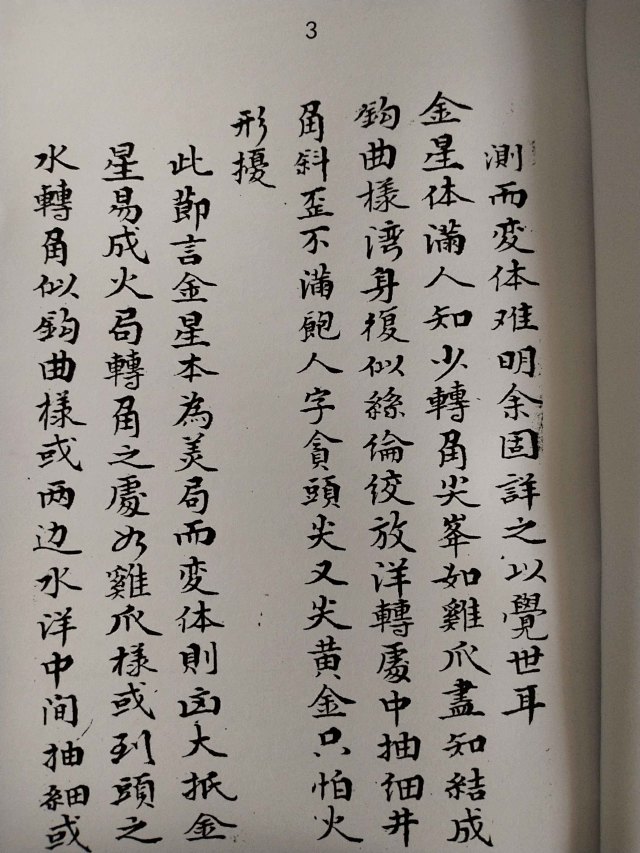 3
測而変体难明余固詳之以覺世耳
金星体满人知少轉角尖峯如雞爪盡知結成
鈎曲樣湾身復似絲倫绞放洋轉處中抽细井
角斜歪不满飽人字貪頭尖又尖黄金只怕火
形擾
此節言金星本為美局而変体則凶大抵金
星易成火局轉角之處如雞爪樣或到頭之
水轉角似鈎曲樣或两边水洋中间抽細或